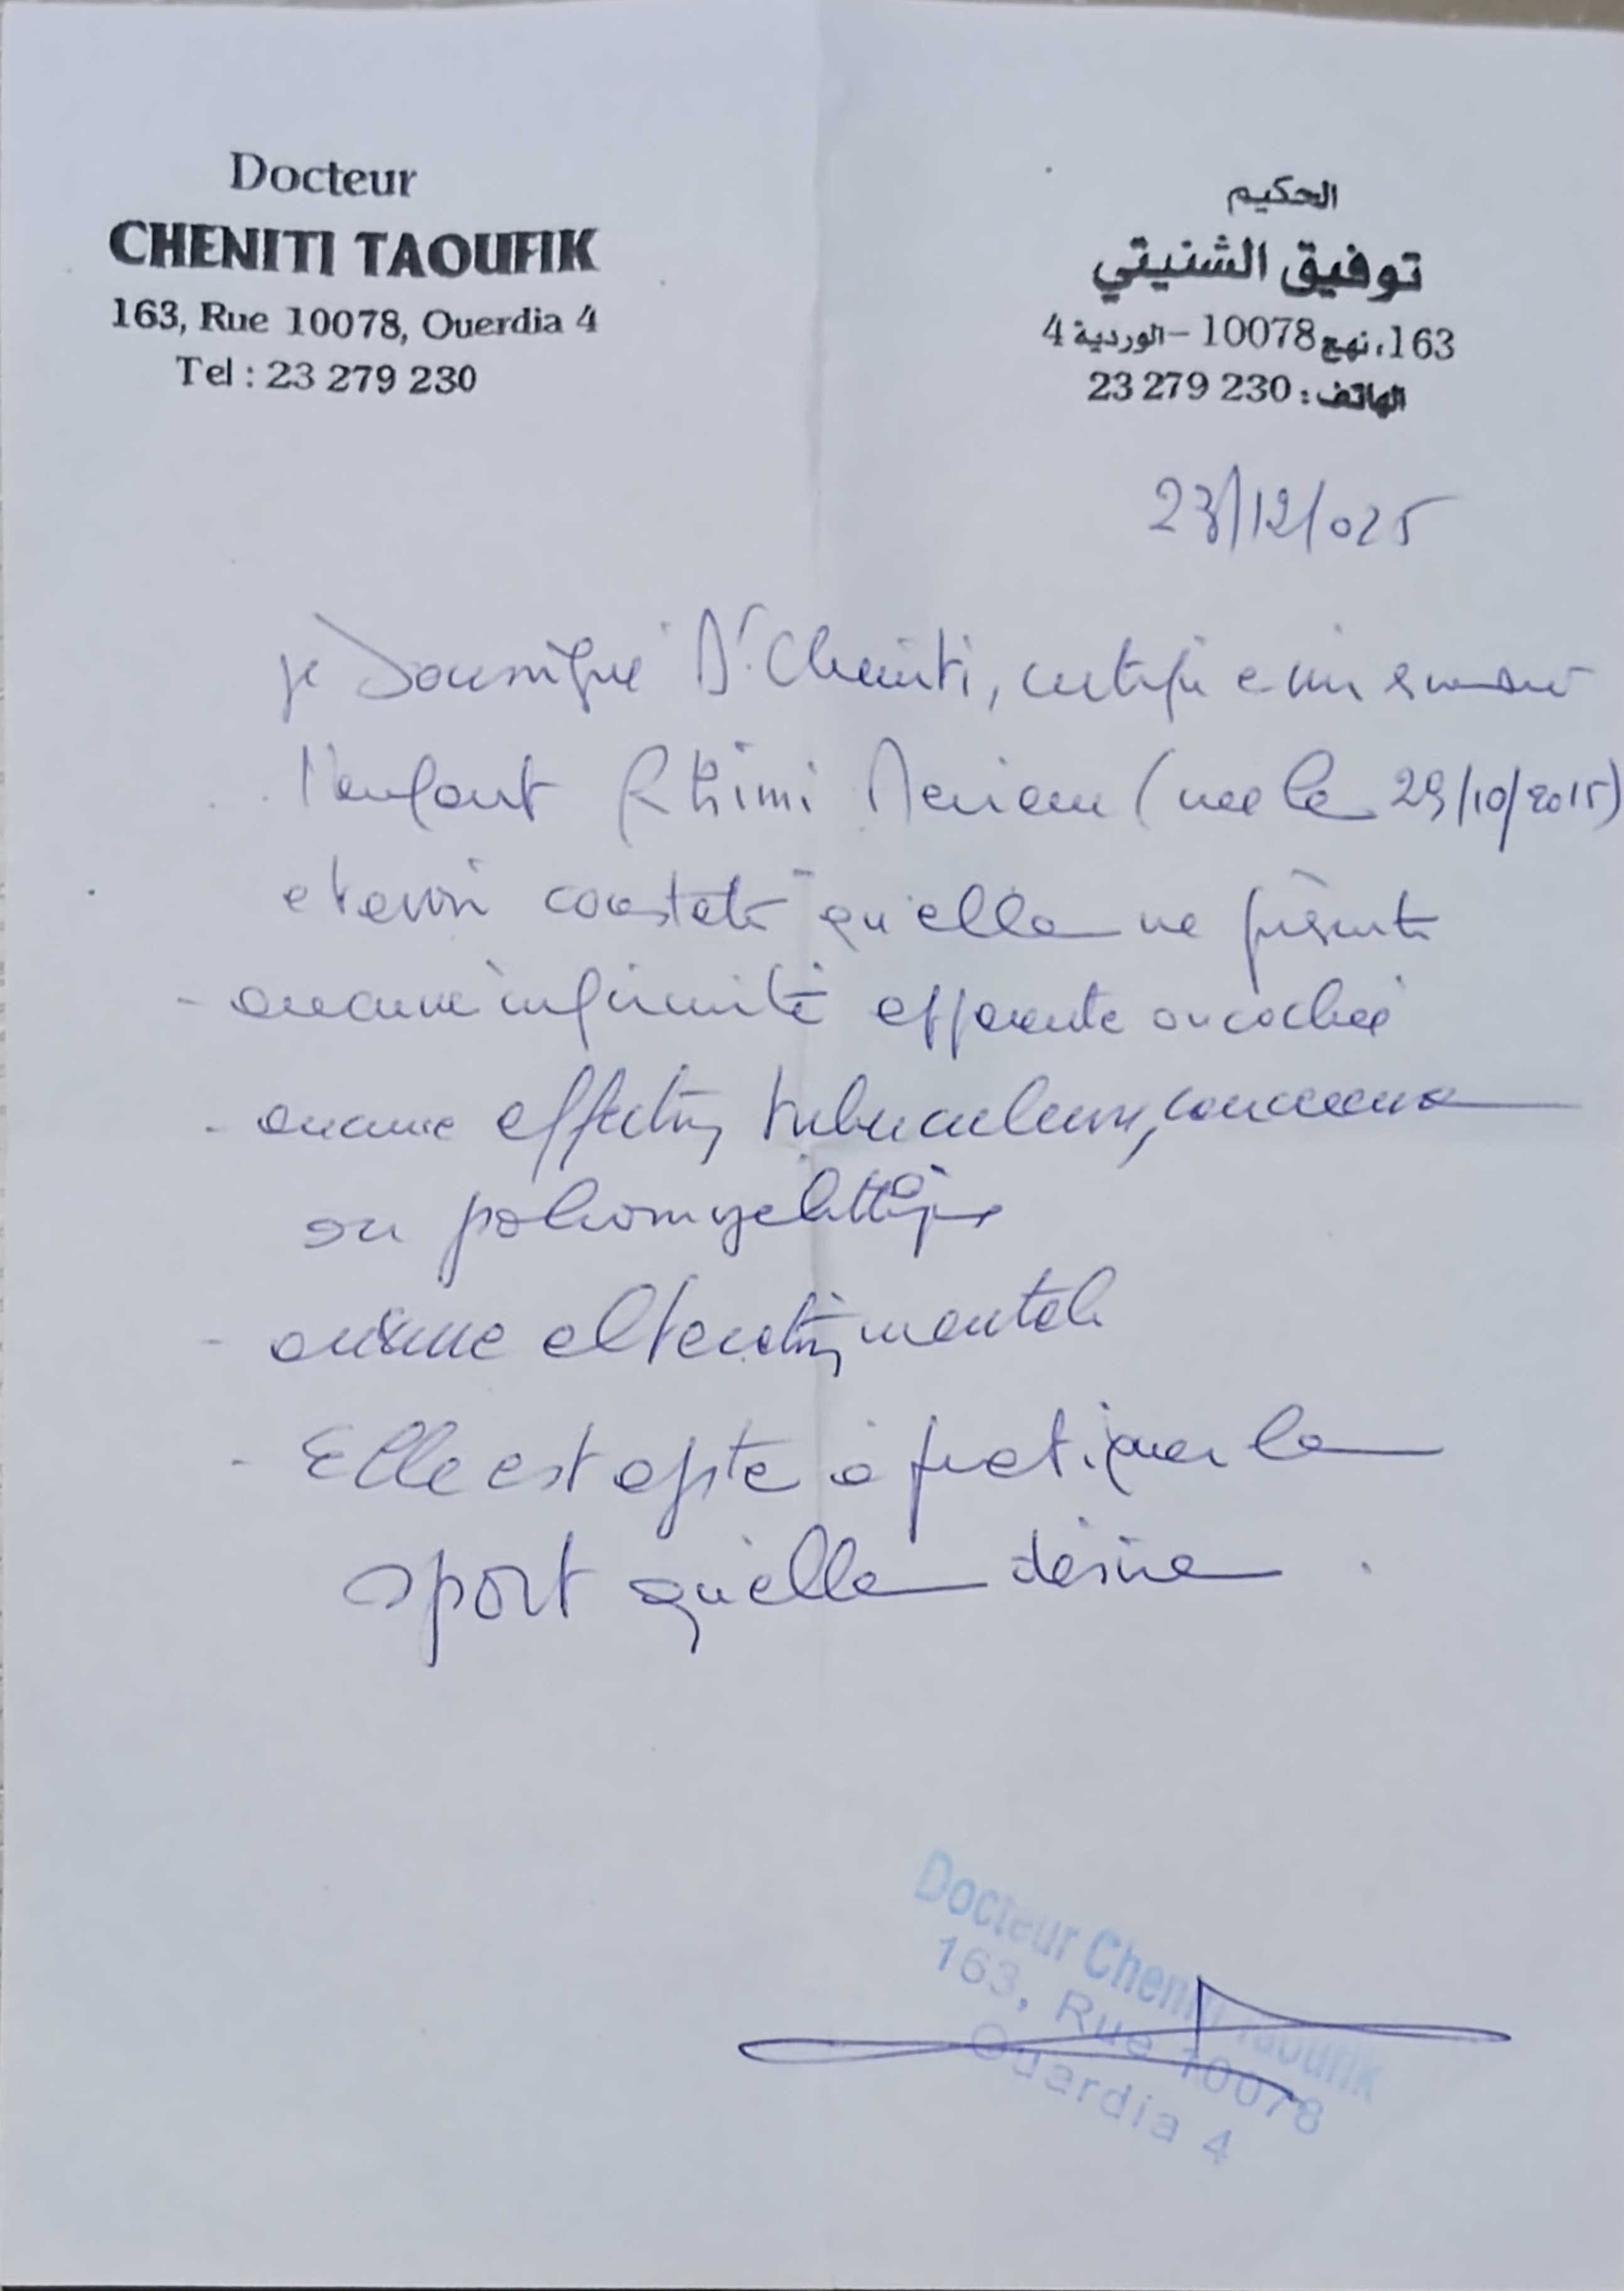 Docteur
CHENITI TAOUFIK
163, Rue 10078, Ouerdia 4
Tel : 23 279 230
الحكيم
توفيق الشنيتي
163، نهج 10078 - الوردية 4
الهاتف : 230 279 23
23/12/025
je soussigné Dr. Cheniti, certifie
l'enfant Rhimi Meriem (née le 29/10/2015)
et avoir constaté qu'elle ne présente
- aucune infirmité apparente ou cachée
- aucune affection tuberculeuse, cancéreuse
ou poliomyelitique
- aucune altération mentale
- Elle est apte à pratiquer le
sport qu'elle désire.
Docteur Cheniti Taoufik
163, Rue 10078
Ouardia 4